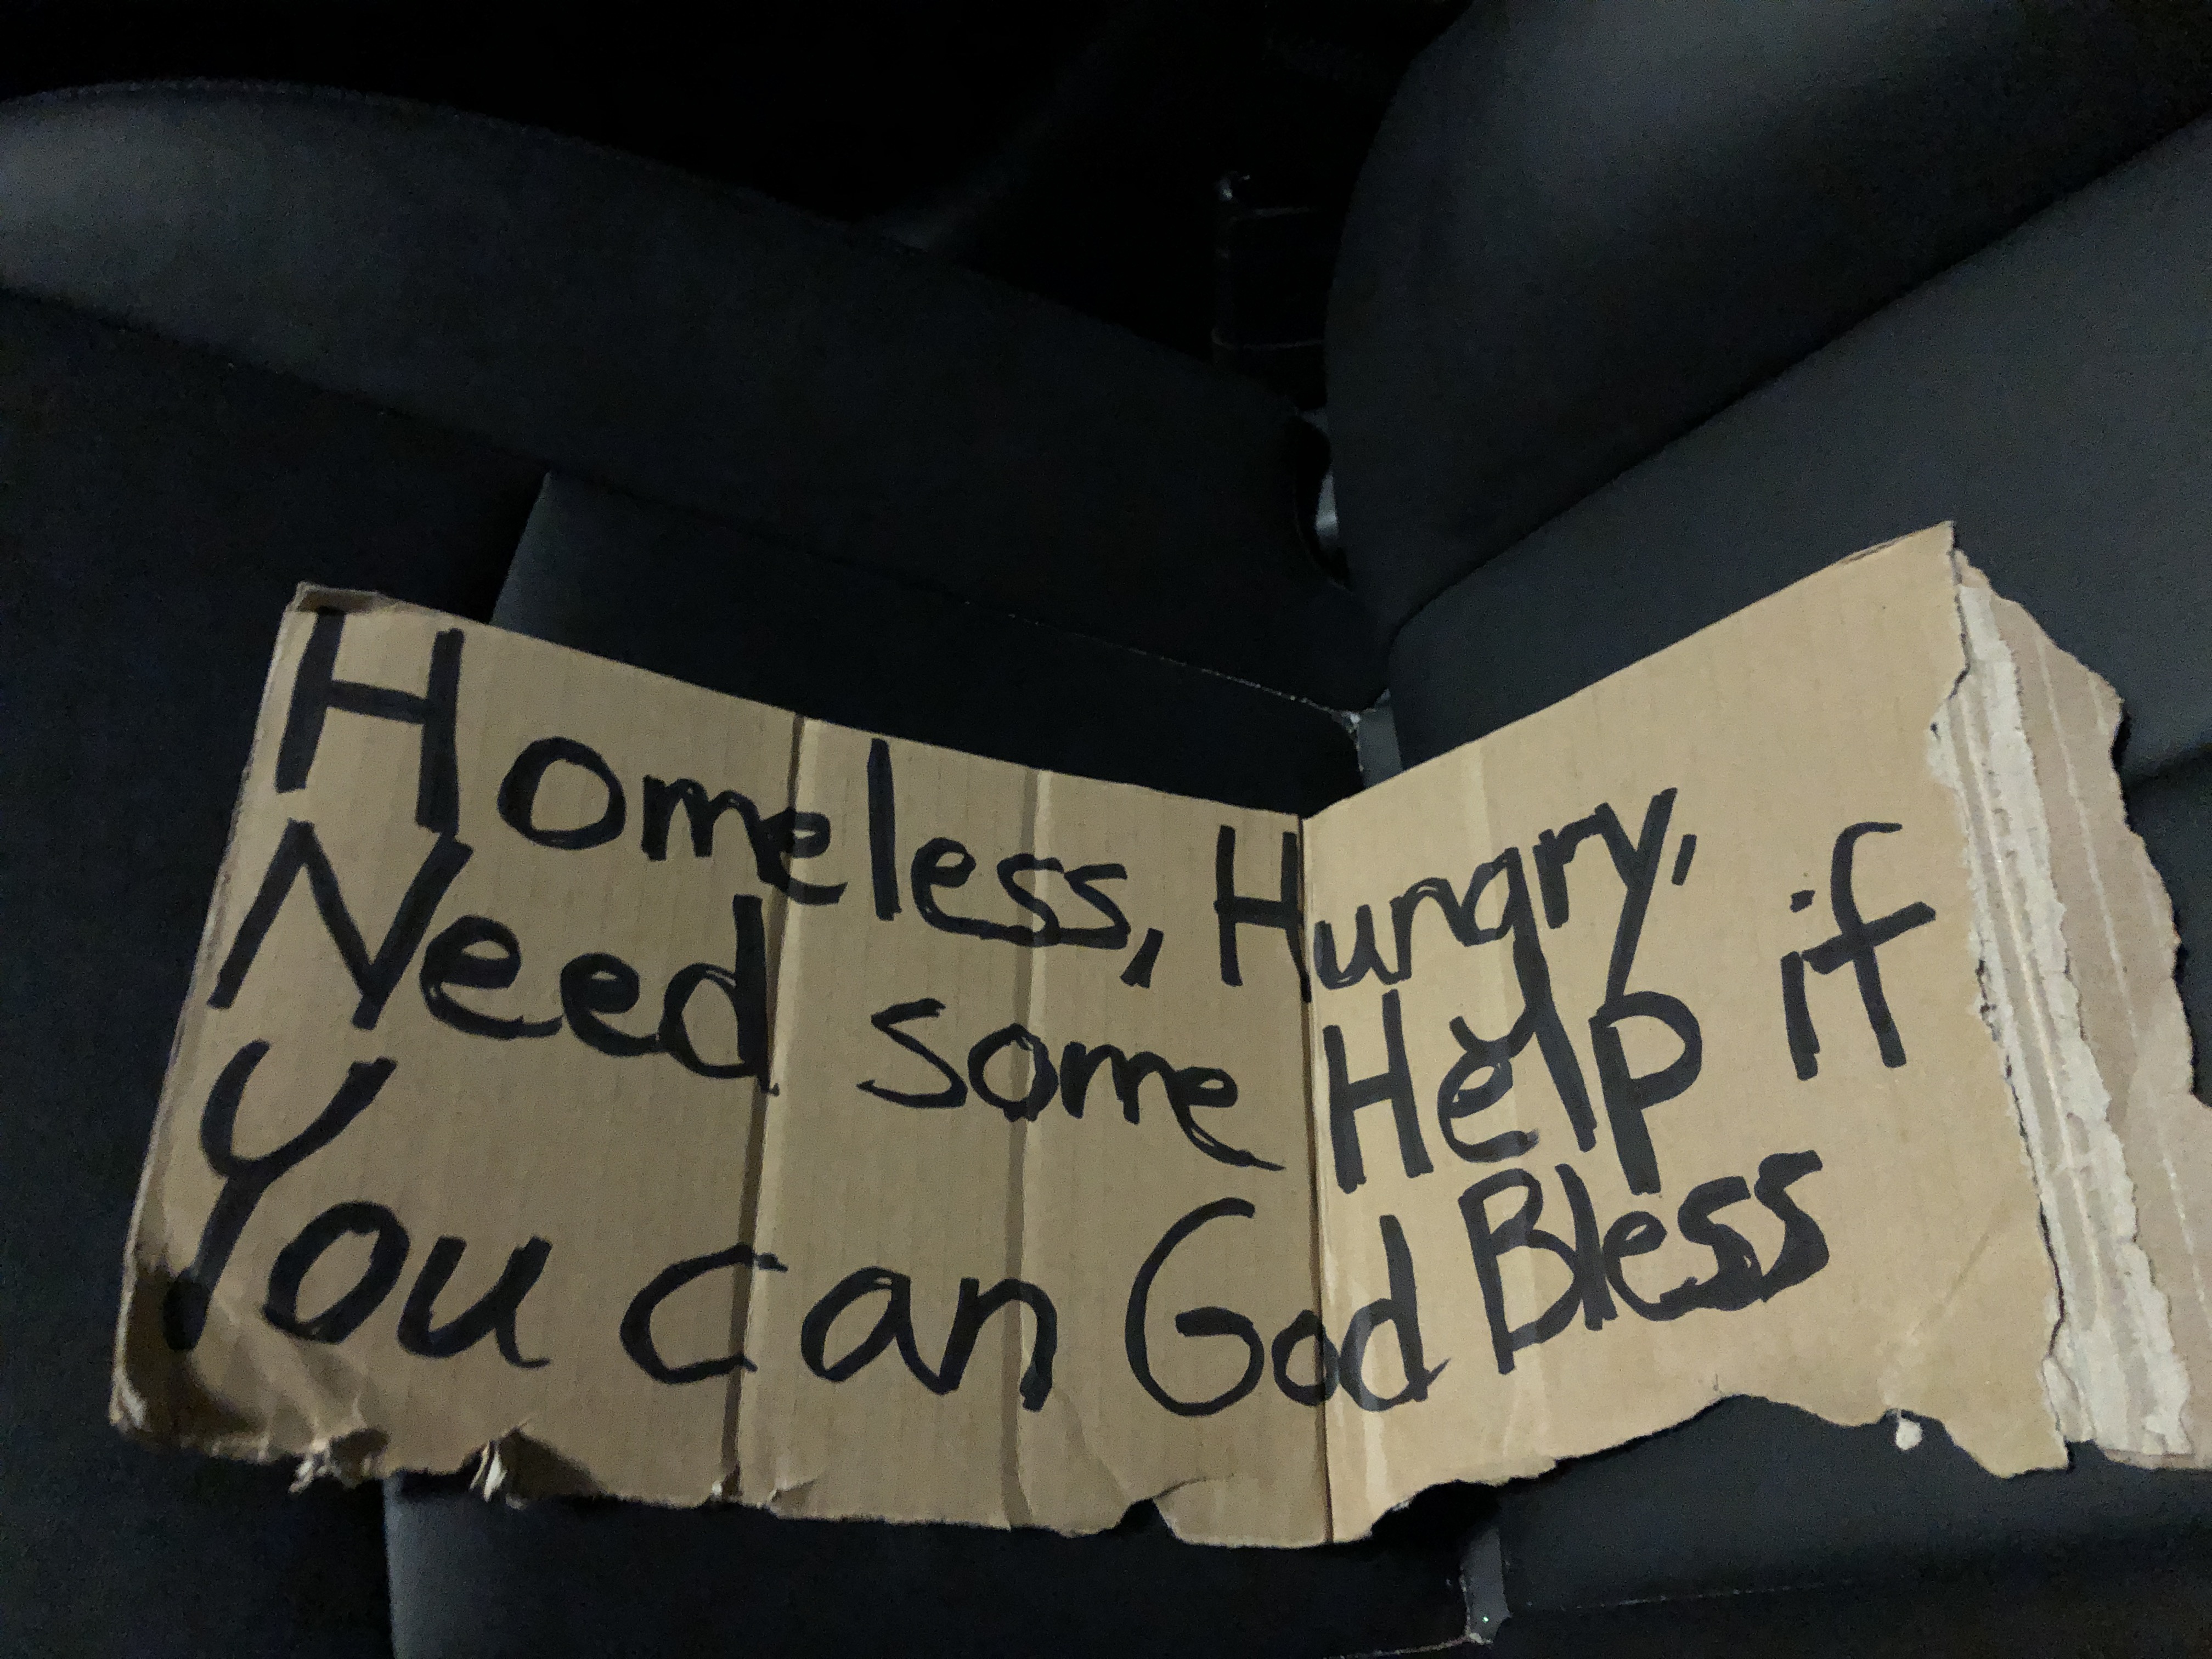 Homeless, Hungry,
Need some Help if
You can God Bless